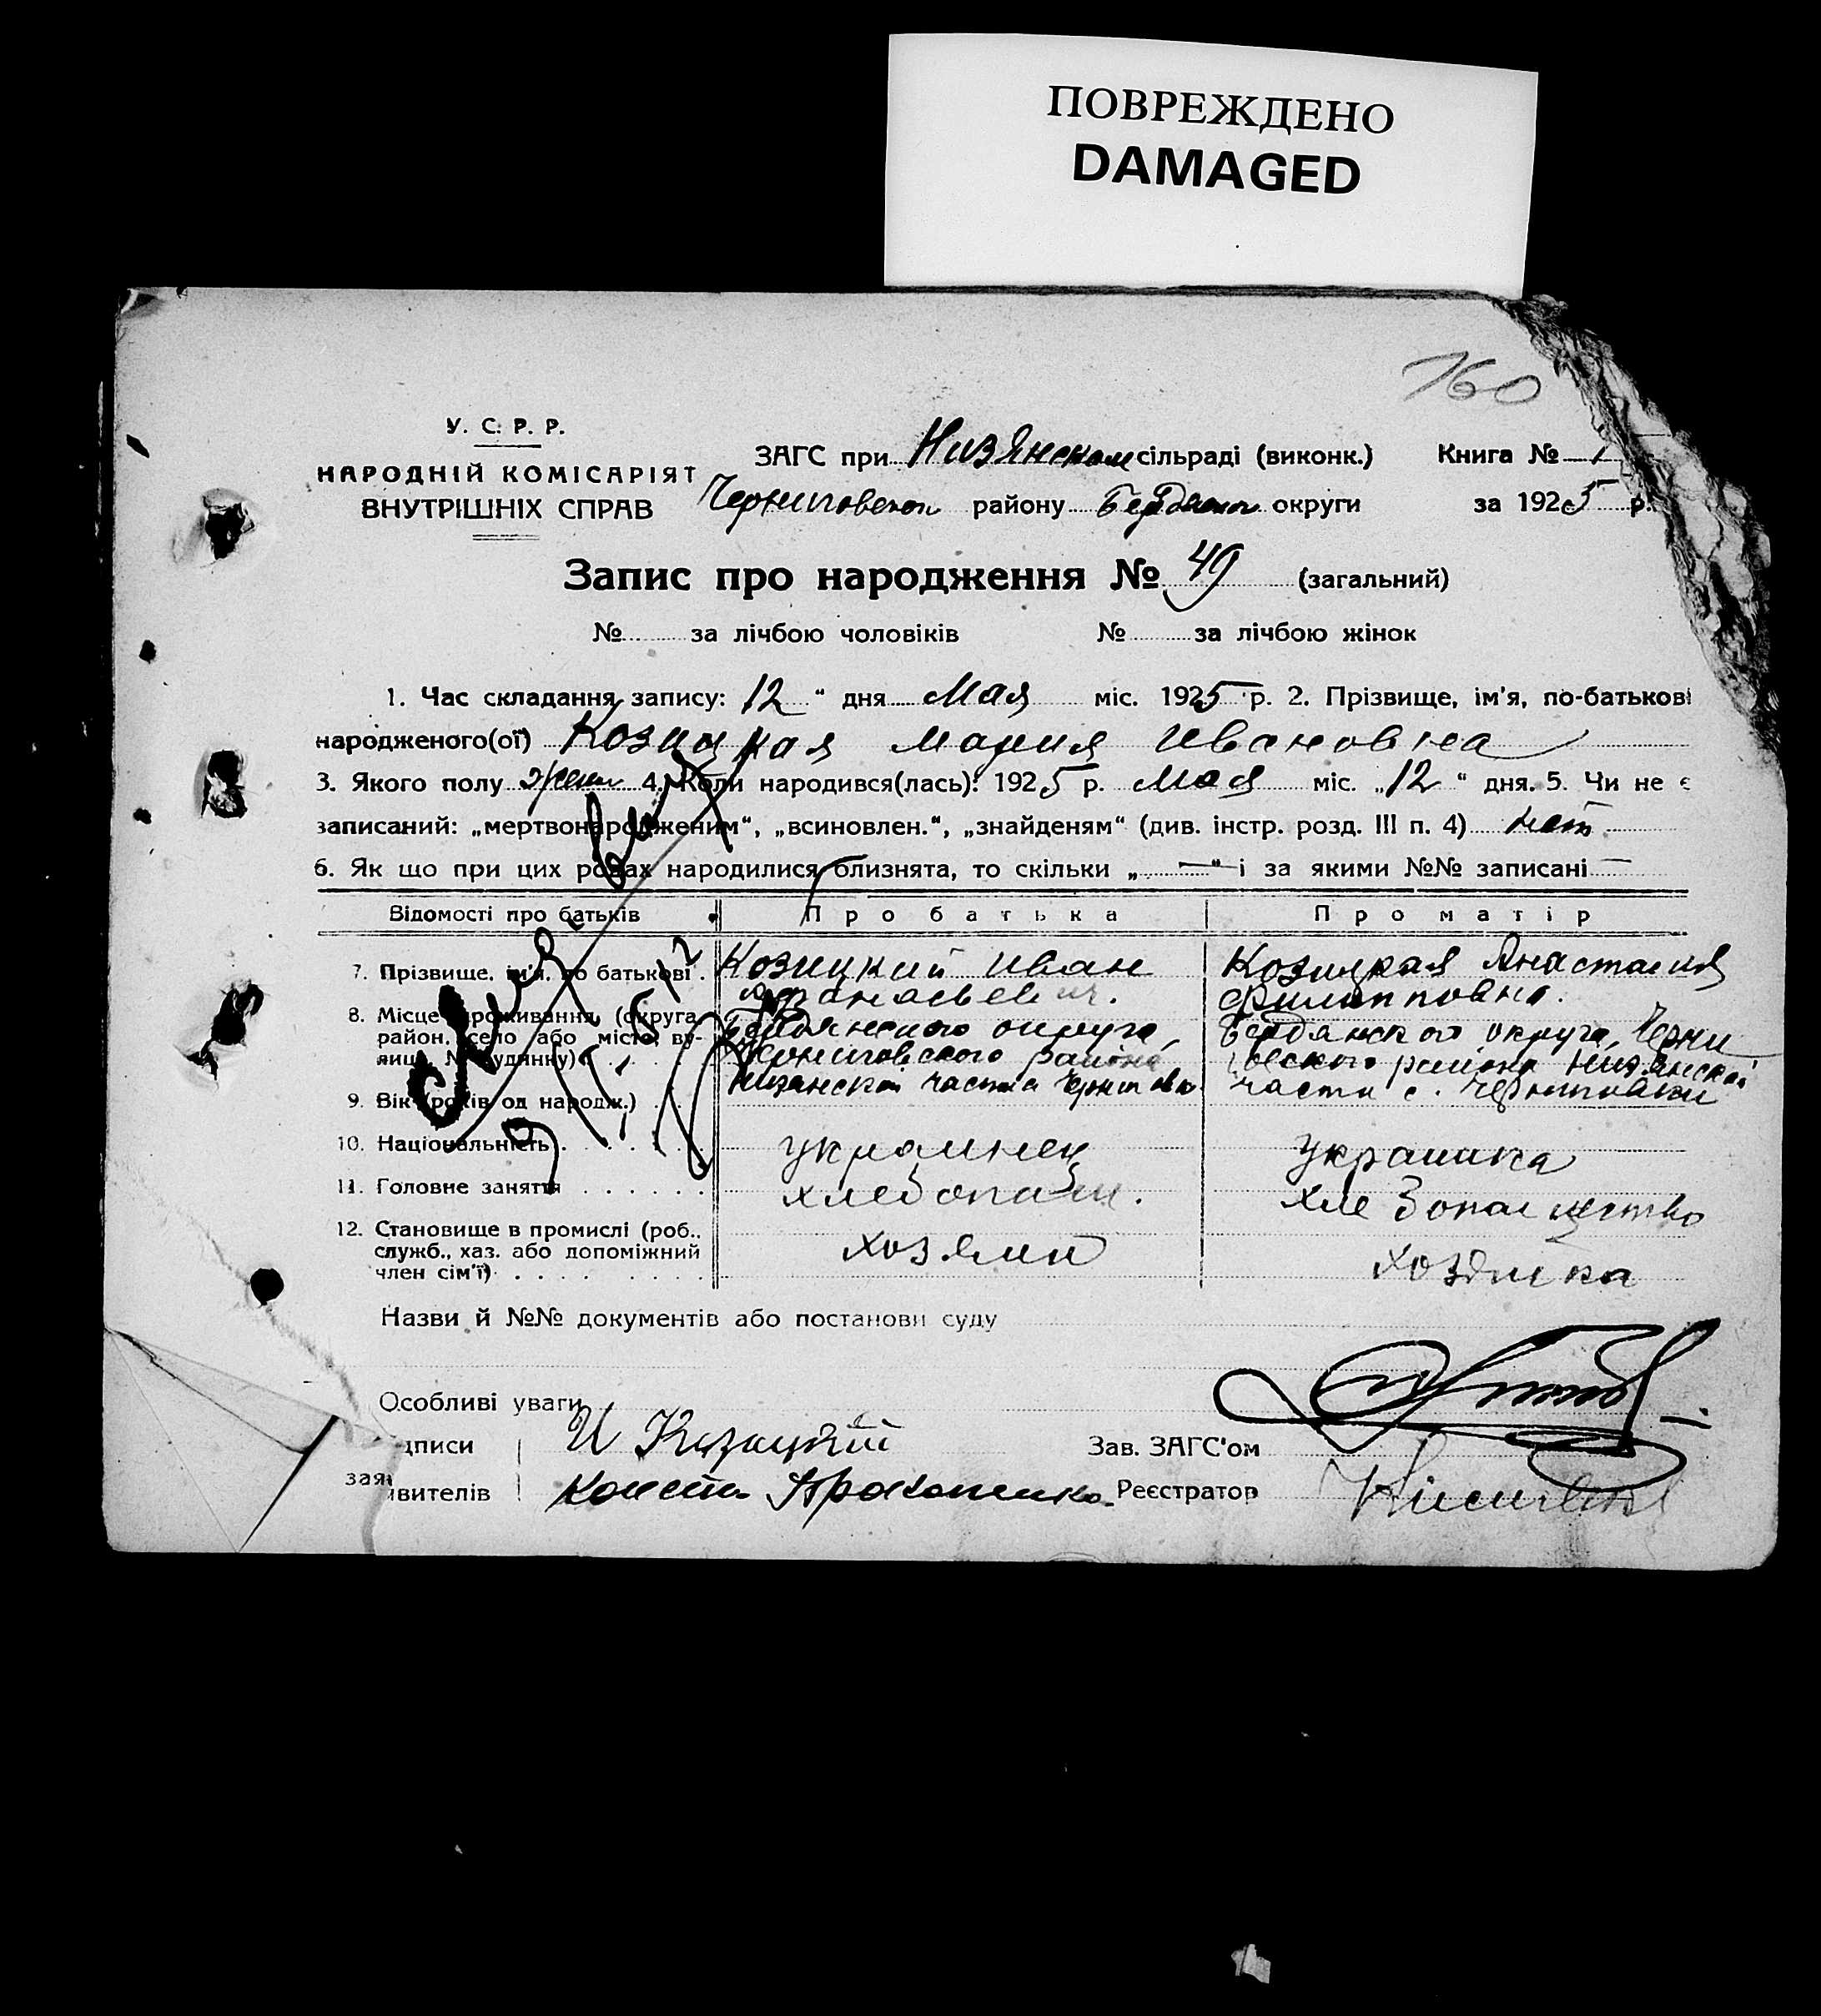 ПОВРЕЖДЕНО
DAMAGED
160
У. С. Р. Р.
НАРОДНІЙ КОМІСАРІЯТ
ВНУТРІШНІХ СПРАВ
ЗАГС при Низянском сільраді (виконк.) Книга № 1
Черниговском району Бердянск округи за 1925 р.
Запис про народження № 49 (загальний)
№ за лічбою чоловіків № за лічбою жінок
1. Час складання запису: 12 " дня Мая міс. 1925 р. 2. Прізвище, ім'я, по-батькові
народженого(ої) Козицкая Мария Ивановна
3. Якого полу жен 4. Коли народився(лась): 1925 р. Мая міс. „12 " дня. 5. Чи не є
записаний: „мертвонародженим", „всиновлен.", „знайденям" (див. інстр. розд. III п. 4) нет
6. Як що при цих родах народилися близнята, то скільки „ — " і за якими №№ записані —
Відомості про батьків Про батька Про матір
7. Прізвище, ім'я, по батькові Козицкий Иван Афанасьевич. Козицкая Анастасия Филипповна.
8. Місце проживання (округа, район, село або місто, вулиця, № будинку) Бердянского округа, Черниговского района Низянской части с Черниговки Бердянского округа, Черниговского района Низянской части с. Черниговки
9. Вік (років од народж.)
10. Національність украинец украинка
11. Головне заняття хлебопаш. хлебопашество
12. Становище в промислі (роб., служб., хаз. або допоміжний член сім'ї) хозяин хозяйка
Назви й №№ документів або постанови суду
Особливі уваги
дписи И Козицкий Зав. ЗАГС'ом
заявителів Реєстратор